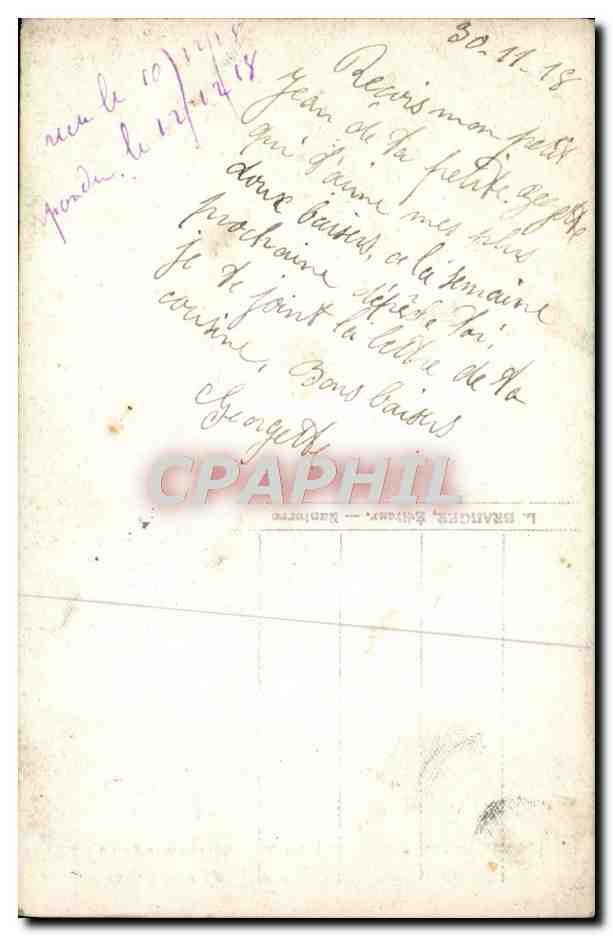 30-11-18
reçu le 10/12/18
répondu le 12/12/18
Reçois mon petit
Jean de ta petite
qui t'aime mes plus
doux baisers, a la semaine
prochaine
je te joint la lettre de ta
cousine, Bons baisers
Georgette
CPAPHIL
L. BRANGER, Éditeur. — Nanterre